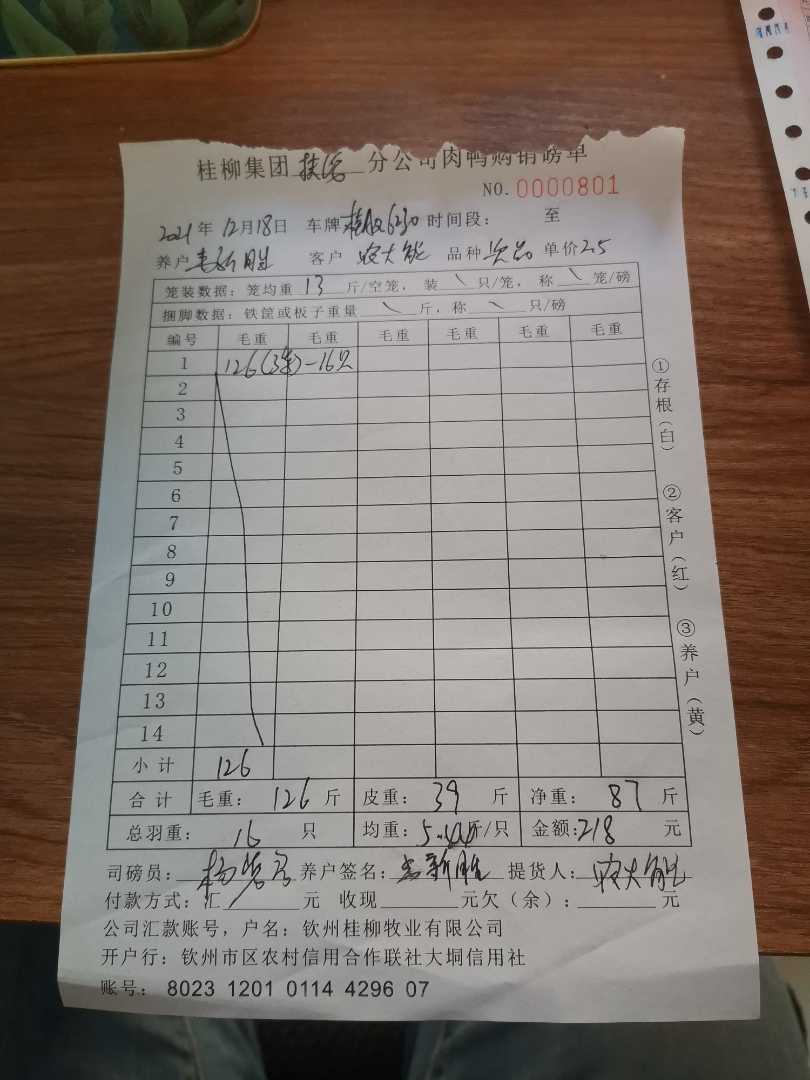 桂柳集团 扶绥 分公司肉鸭购销磅单
NO. 0000801
2021年 12月18日 车牌 桂 6230 时间段: 至
养户 客户 农大能 品种 次品 单价 2.5
笼装数据: 笼均重 13 斤/空笼, 装 \ 只/笼, 称 \ 笼/磅
捆脚数据: 铁筐或板子重量 \ 斤, 称 \ 只/磅
编号 毛重 毛重 毛重 毛重 毛重 毛重
1 126(3笼)-16只
2
3
4
5
6
7
8
9
10
11
12
13
14
小计 126
合计 毛重: 126 斤 皮重: 39 斤 净重: 87 斤
总羽重: 16 只 均重: 斤/只 金额: 218 元
司磅员: 养户签名: 新胜 提货人: 农大能
付款方式: 汇 元 收现 元 欠(余): 元
公司汇款账号, 户名: 钦州桂柳牧业有限公司
开户行: 钦州市区农村信用合作联社大垌信用社
账号: 8023 1201 0114 4296 07
①存根(白) ②客户(红) ③养户(黄)